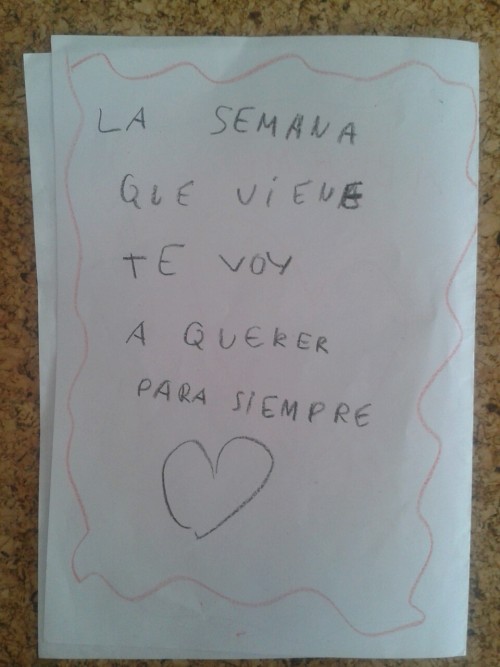 LA SEMANA
QUE VIENE
TE VOY
A QUERER
PARA SIEMPRE